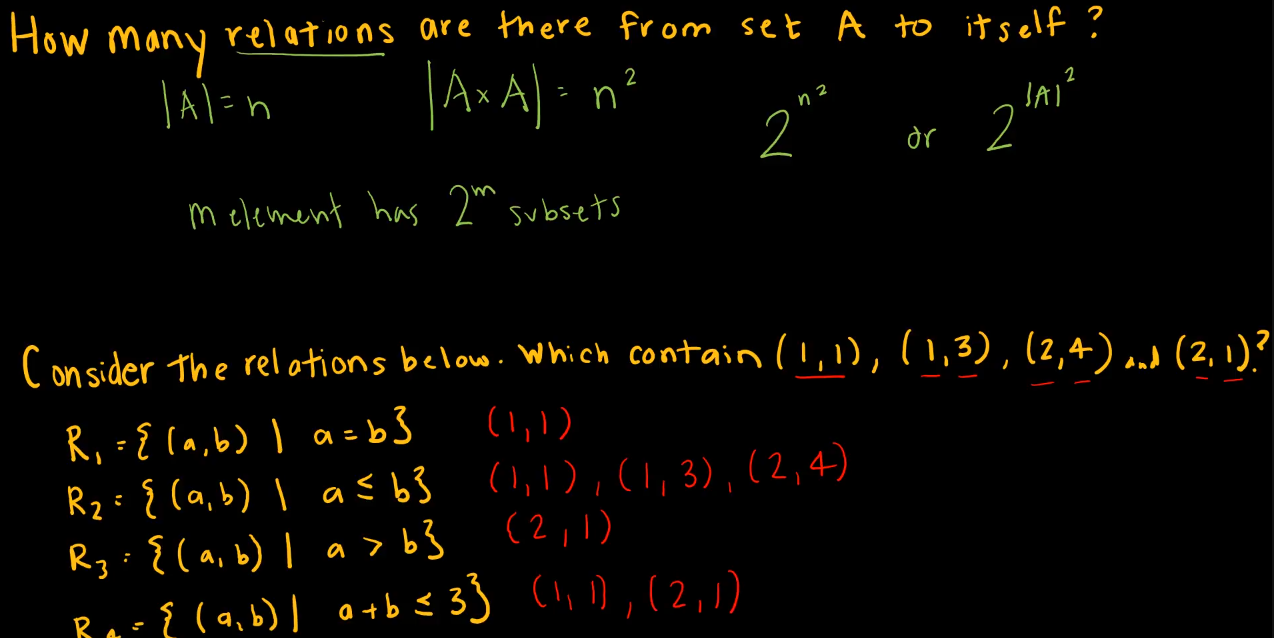 How many relations are there from set A to itself?
|A| = n |A × A| = n² 2^n² or 2^|A|²
m element has 2^m subsets
Consider the relations below. Which contain (1,1), (1,3), (2,4) and (2,1)?
R₁ = { (a,b) | a = b} (1,1)
R₂ = { (a,b) | a ≤ b} (1,1), (1,3), (2,4)
R₃ = {(a,b) | a > b} (2,1)
R₄ = { (a,b) | a + b ≤ 3} (1,1), (2,1)